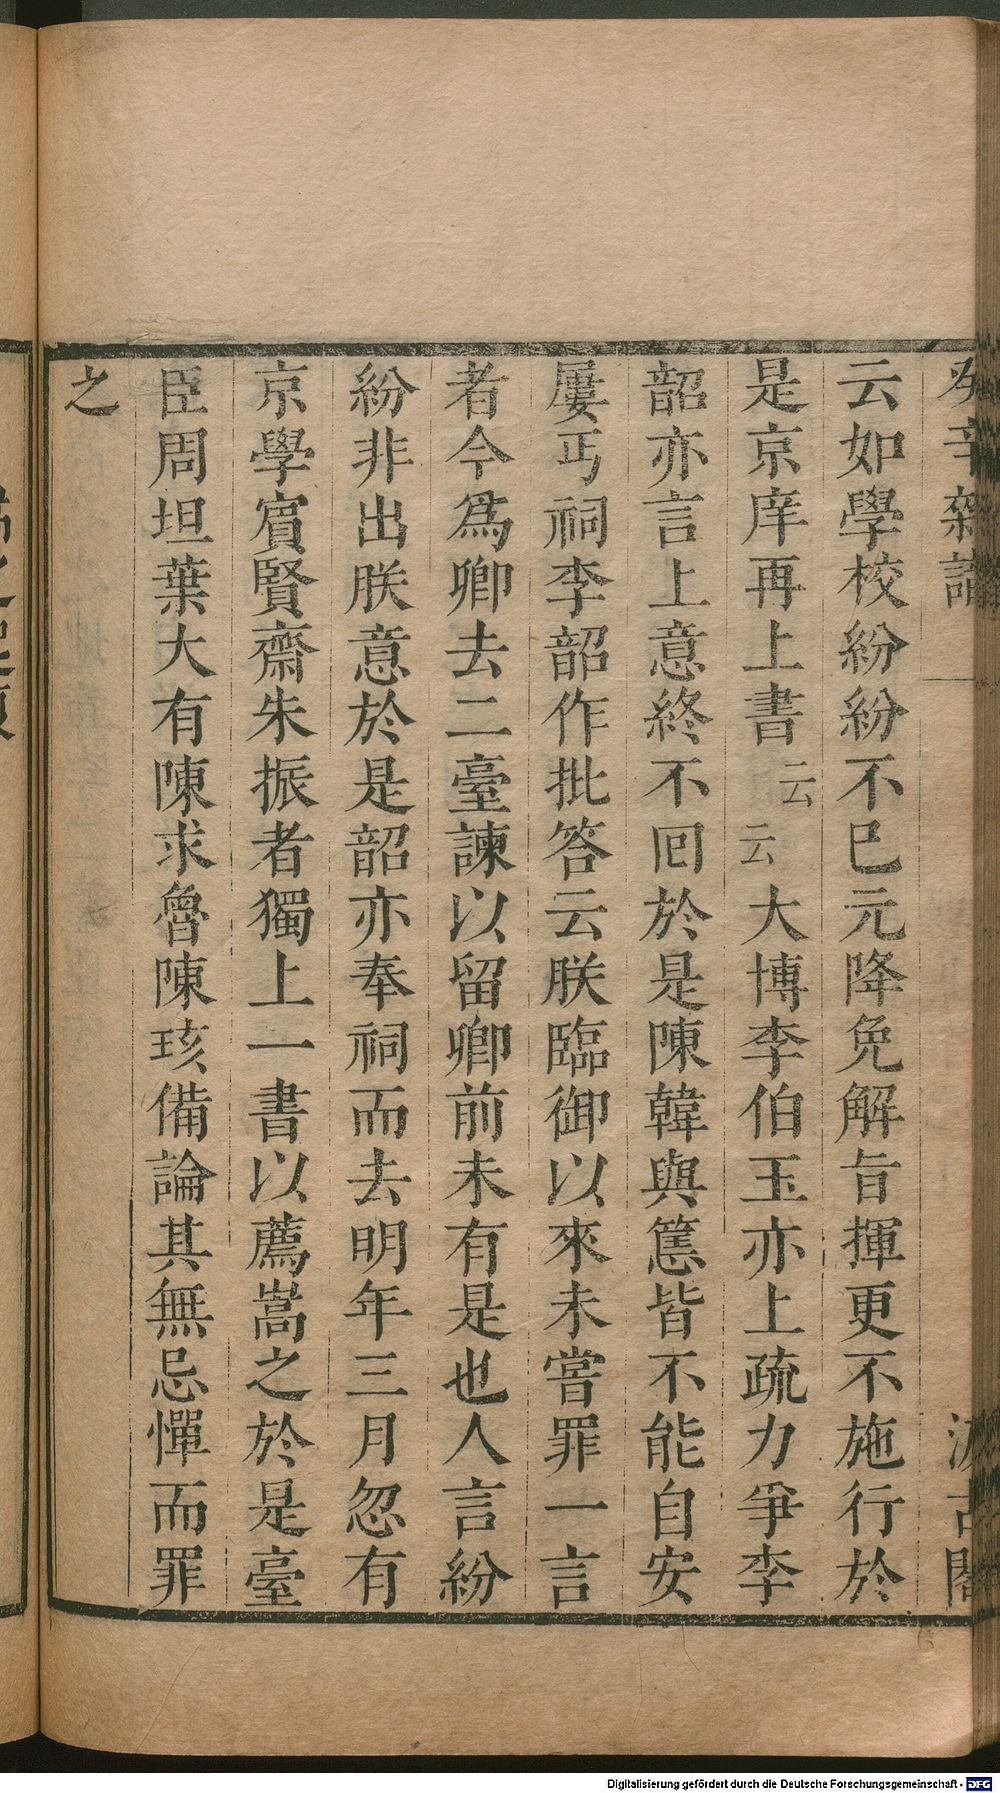 云如學校紛紛不已元降免解旨揮更不施行於
是京庠再上書云云大博李伯玉亦上疏力爭李
韶亦言上意終不囘於是陳韓與𥳑皆不能自安
屢丐祠李韶作批答云朕臨御以來未嘗罪一言
者今爲卿去二臺諫以留卿前未有是也人言紛
紛非出朕意於是韶亦奉祠而去明年三月忽有
京學賔賢齋朱振者獨上一書以薦嵩之於是臺
臣周坦葉大有陳求魯陳垓備論其無忌憚而罪
之
Digitalisierung gefördert durch die Deutsche Forschungsgemeinschaft - DFG